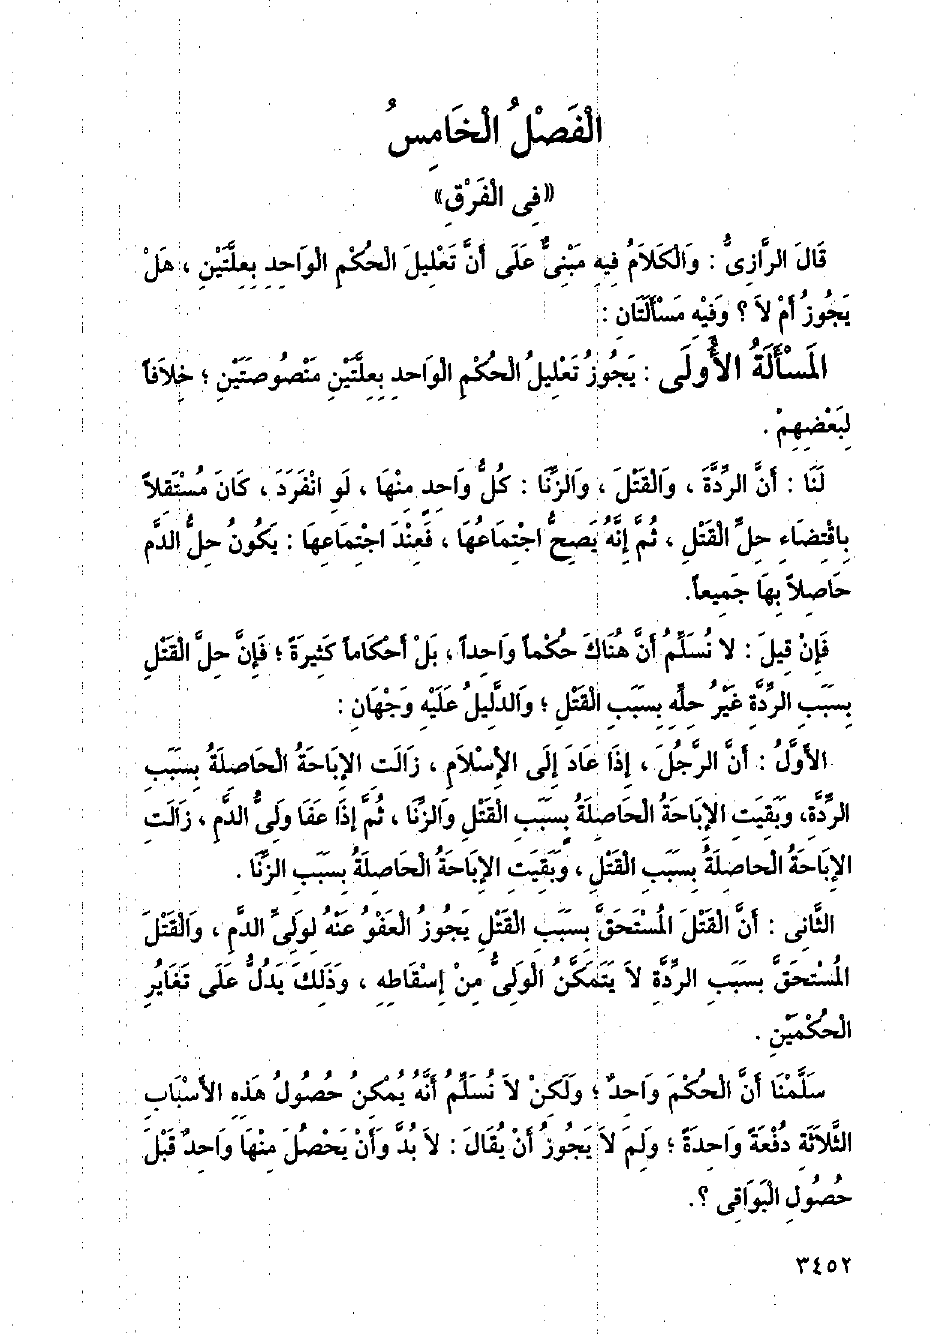 الْفَصْلُ الْخَامِسُ
«فِى الْفَرْقِ»
قَالَ الرَّازِىُّ : وَالْكَلاَمُ فِيهِ مَبْنِىٌّ عَلَى أَنَّ تَعْلِيلَ الْحُكْمِ الْوَاحِدِ بِعِلَّتَيْنِ ، هَلْ
يَجُوزُ أَمْ لاَ ؟ وَفِيْهِ مَسْأَلَتَانِ :
الْمَسْأَلَةُ الأُولَى : يَجُوزُ تَعْلِيلُ الْحُكْمِ الْوَاحِدِ بِعِلَّتَيْنِ مَنْصُوصَتَيْنِ ؛ خِلاَفاً
لِبَعْضِهِمْ .
لَنَا : أَنَّ الرِّدَّةَ ، وَالْقَتْلَ ، وَالزِّنَا : كُلُّ وَاحِدٍ مِنْهَا ، لَوِ انْفَرَدَ ، كَانَ مُسْتَقِلاً
بِاقْتِضَاءِ حِلِّ الْقَتْلِ ، ثُمَّ إِنَّهُ يَصِحُّ اجْتِمَاعُهَا ، فَعِنْدَ اجْتِمَاعِهَا : يَكُونُ حِلُّ الدَّمِ
حَاصِلاً بِهَا جَمِيعاً.
فَإِنْ قِيلَ : لا نُسَلِّمُ أَنَّ هُنَاكَ حُكْماً وَاحِداً ، بَلْ أَحْكَاماً كَثِيرَةً ؛ فَإِنَّ حِلَّ الْقَتْلِ
بِسَبَبِ الرِّدَّةِ غَيْرُ حِلِّهِ بِسَبَبِ الْقَتْلِ ؛ وَالدَّلِيلُ عَلَيْهِ وَجْهَانِ :
الأَوَّلُ : أَنَّ الرَّجُلَ ، إِذَا عَادَ إِلَى الإِسْلاَمِ ، زَالَتِ الإِبَاحَةُ الْحَاصِلَةُ بِسَبَبِ
الرِّدَّةِ، وَبَقِيَتِ الإِبَاحَةُ الْحَاصِلَةُ بِسَبَبِ الْقَتْلِ وَالزِّنَا ، ثُمَّ إِذَا عَفَا وَلِىُّ الدَّمِ ، زَالَتِ
الإِبَاحَةُ الْحَاصِلَةُ بِسَبَبِ الْقَتْلِ ، وَبَقِيَتِ الإِبَاحَةُ الْحَاصِلَةُ بِسَبَبِ الزِّنَا .
الثَّانِى : أَنَّ الْقَتْلَ الْمُسْتَحَقَّ بِسَبَبِ الْقَتْلِ يَجُوزُ الْعَفْوُ عَنْهُ لِوَلِىِّ الدَّمِ ، وَالْقَتْلَ
الْمُسْتَحَقَّ بِسَبَبِ الرِّدَّةِ لاَ يَتَمَكَّنُ الْوَلِىُّ مِنْ إِسْقَاطِهِ ، وَذَلِكَ يَدُلُّ عَلَى تَغَايُرِ
الْحُكْمَيْنِ .
سَلَّمْنَا أَنَّ الْحُكْمَ وَاحِدٌ ؛ وَلَكِنْ لاَ نُسَلِّمُ أَنَّهُ يُمْكِنُ حُصُولُ هَذِهِ الأَسْبَابِ
الثَّلاَثَةِ دُفْعَةً وَاحِدَةً ؛ وَلِمَ لاَ يَجُوزُ أَنْ يُقَالَ : لاَ بُدَّ وَأَنْ يَحْصُلَ مِنْهَا وَاحِدٌ قَبْلَ
حُصُولِ الْبَوَاقِى ؟.
٣٤٥٢